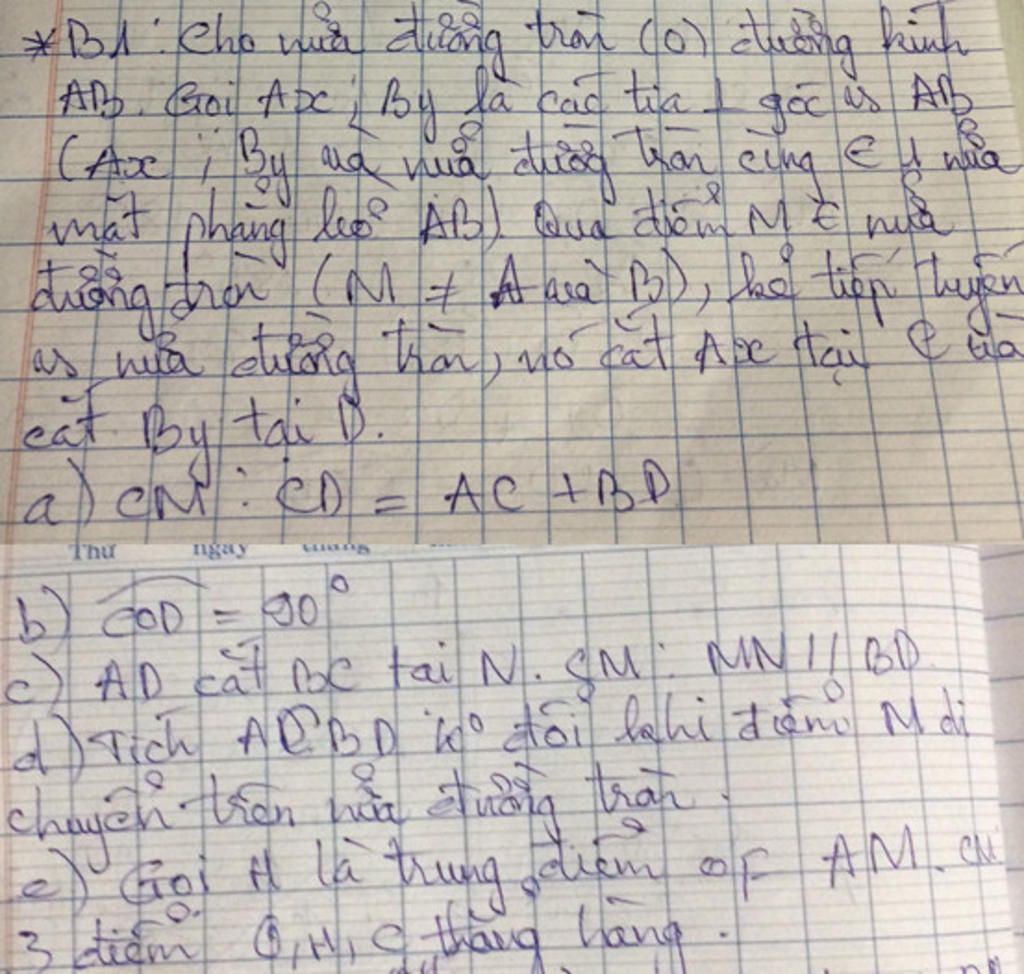 *B1: Cho nửa đường tròn (O) đường kính
AB. Gọi Ax; By là các tia ⊥ góc vs AB
(Ax; By và nửa đường tròn cùng ∈ 1 nửa
mặt phẳng bờ AB) Qua điểm M ∈ nửa
đường tròn (M ≠ A và B), kẻ tiếp tuyến
vs nửa đường tròn, nó cắt Ax tại C và
cắt By tại D.
a) CM: CD = AC + BD
Thứ ngày tháng
b) COD = 90°
c) AD cắt BC tại N. CM: MN // BD
d) Tích AC.BD ko đổi khi điểm M di
chuyển trên nửa đường tròn.
e) Gọi H là trung điểm of AM. CM
3 điểm O, H, C thẳng hàng.